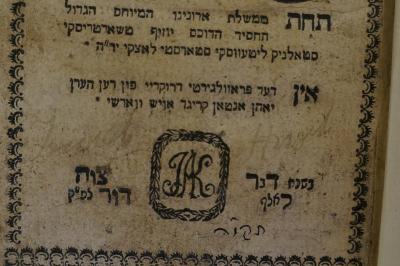 תחת ממשלת אדונינו המיוחס הגדול
החסיד הדוכס יוזיף טשארטריסקי
סטאלניק ליטעווסקי סטארסטי לאצקי יר״ה
אין דער פראוולגירטי דרוקריי פין דען הערן
יאהן אנטאן קריגר אויש ווארשי
בשנת דבר צוה
לאלף דור לפ״ק